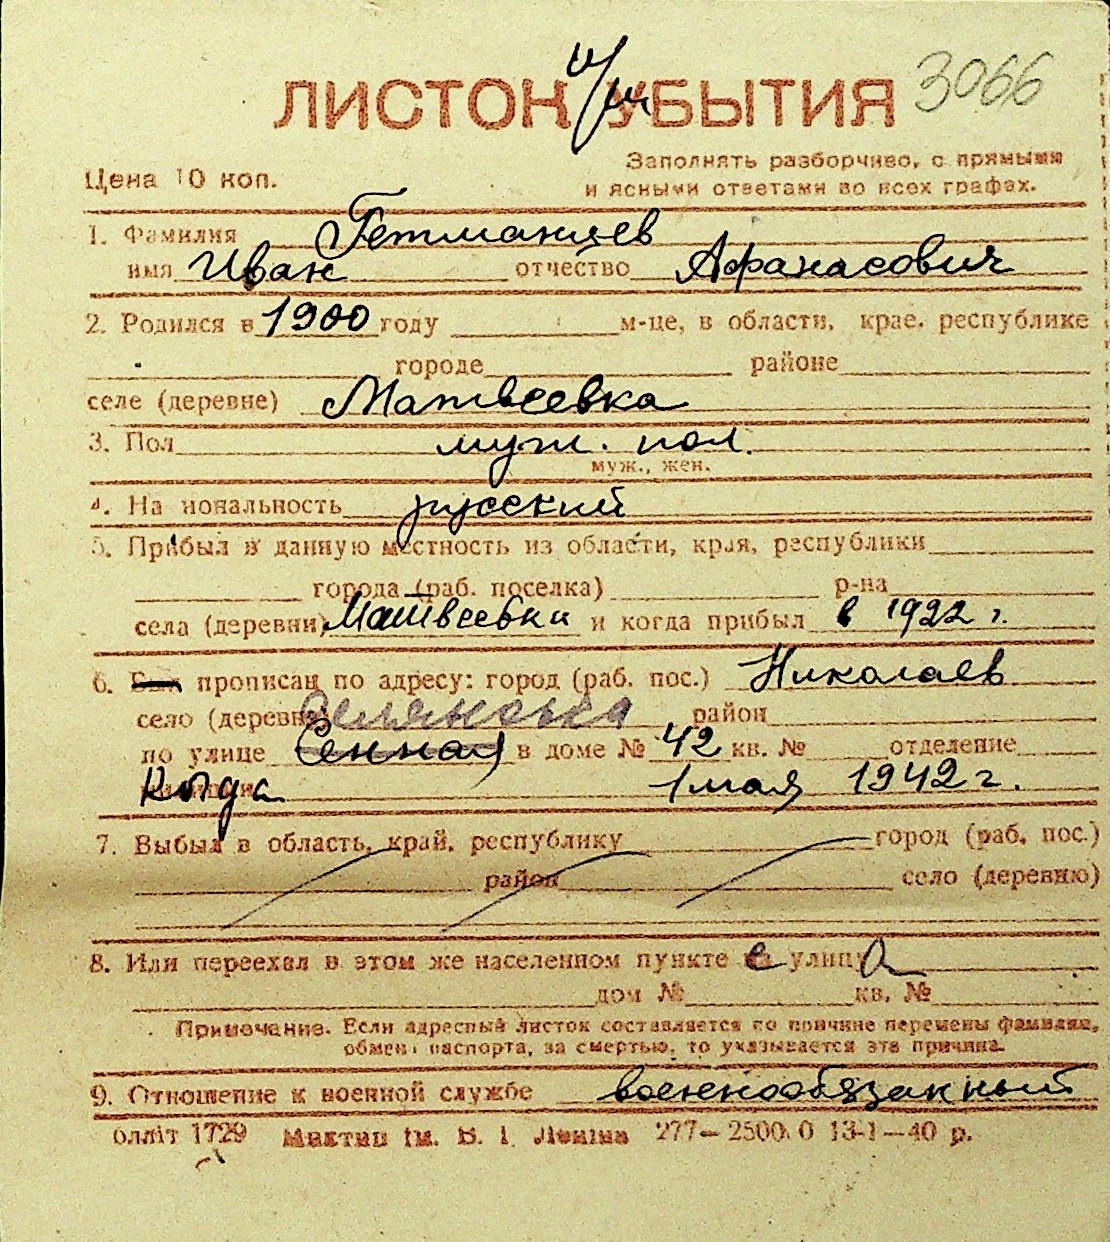 ЛИСТОК УБЫТИЯ 3066
Заполнять разборчиво, с прямыми
Цена 10 коп. и ясными ответами во всех графах.
1. Фамилия Гетманцев
имя Иван отчество Афанасович
2. Родился в 1900 году м-це, в области, крае, республике
городе районе
селе (деревне) Матвеевка
3. Пол муж. пол.
муж., жен.
4. На иональность русский
5. Прибыл в данную местность из области, края, республики
города (раб. поселка) р-на
села (деревни) Матвеевки и когда прибыл в 1922 г.
6. Был прописан по адресу: город (раб. пос.) Николаев
село (деревня) район
по улице Сенная в доме № 42 кв. № отделение
Когда 1 мая 1942 г.
7. Выбыл в область, край, республику город (раб. пос.)
район село (деревню)
8. Или переехал в этом же населенном пункте с улицы
дом № кв. №
Примечание. Если адресный листок составляется по причине перемены фамилии,
обмена паспорта, за смертью, то указывается эта причина.
9. Отношение к военной службе военнообязанный
олліт 1729 ім. В. І. Леніна 277—2500.0 13-1—40 р.